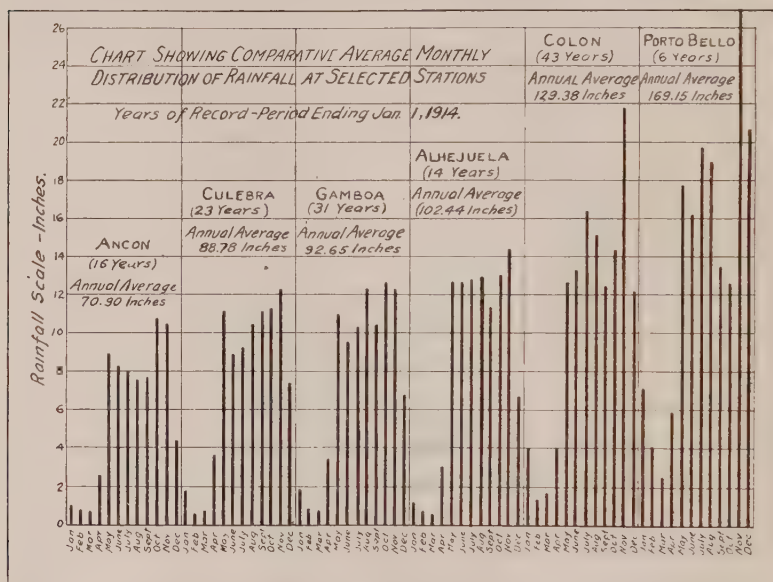 26
24
22
20
18
16
14
12
10
8
6
4
2
0
Rainfall Scale - Inches.
CHART SHOWING COMPARATIVE AVERAGE MONTHLY
DISTRIBUTION OF RAINFALL AT SELECTED STATIONS
Years of Record-Period Ending Jan. 1, 1914.
ANCON
(16 Years)
Annual Average
70.90 Inches
CULEBRA
(23 Years)
Annual Average
88.78 Inches
GAMBOA
(31 Years)
Annual Average
92.65 Inches
ALHEJUELA
(14 Years)
Annual Average
(102.44 Inches)
COLON
(43 Years)
Annual Average
129.38 Inches
PORTO BELLO
(6 Years)
Annual Average
169.15 Inches
Jan Feb Mar Apr May June July Aug Sept Oct Nov Dec
Jan Feb Mar Apr May June July Aug Sept Oct Nov Dec
Jan Feb Mar Apr May June July Aug Sept Oct Nov Dec
Jan Feb Mar Apr May June July Aug Sept Oct Nov Dec
Jan Feb Mar Apr May June July Aug Sept Oct Nov Dec
Jan Feb Mar Apr May June July Aug Sept Oct Nov Dec